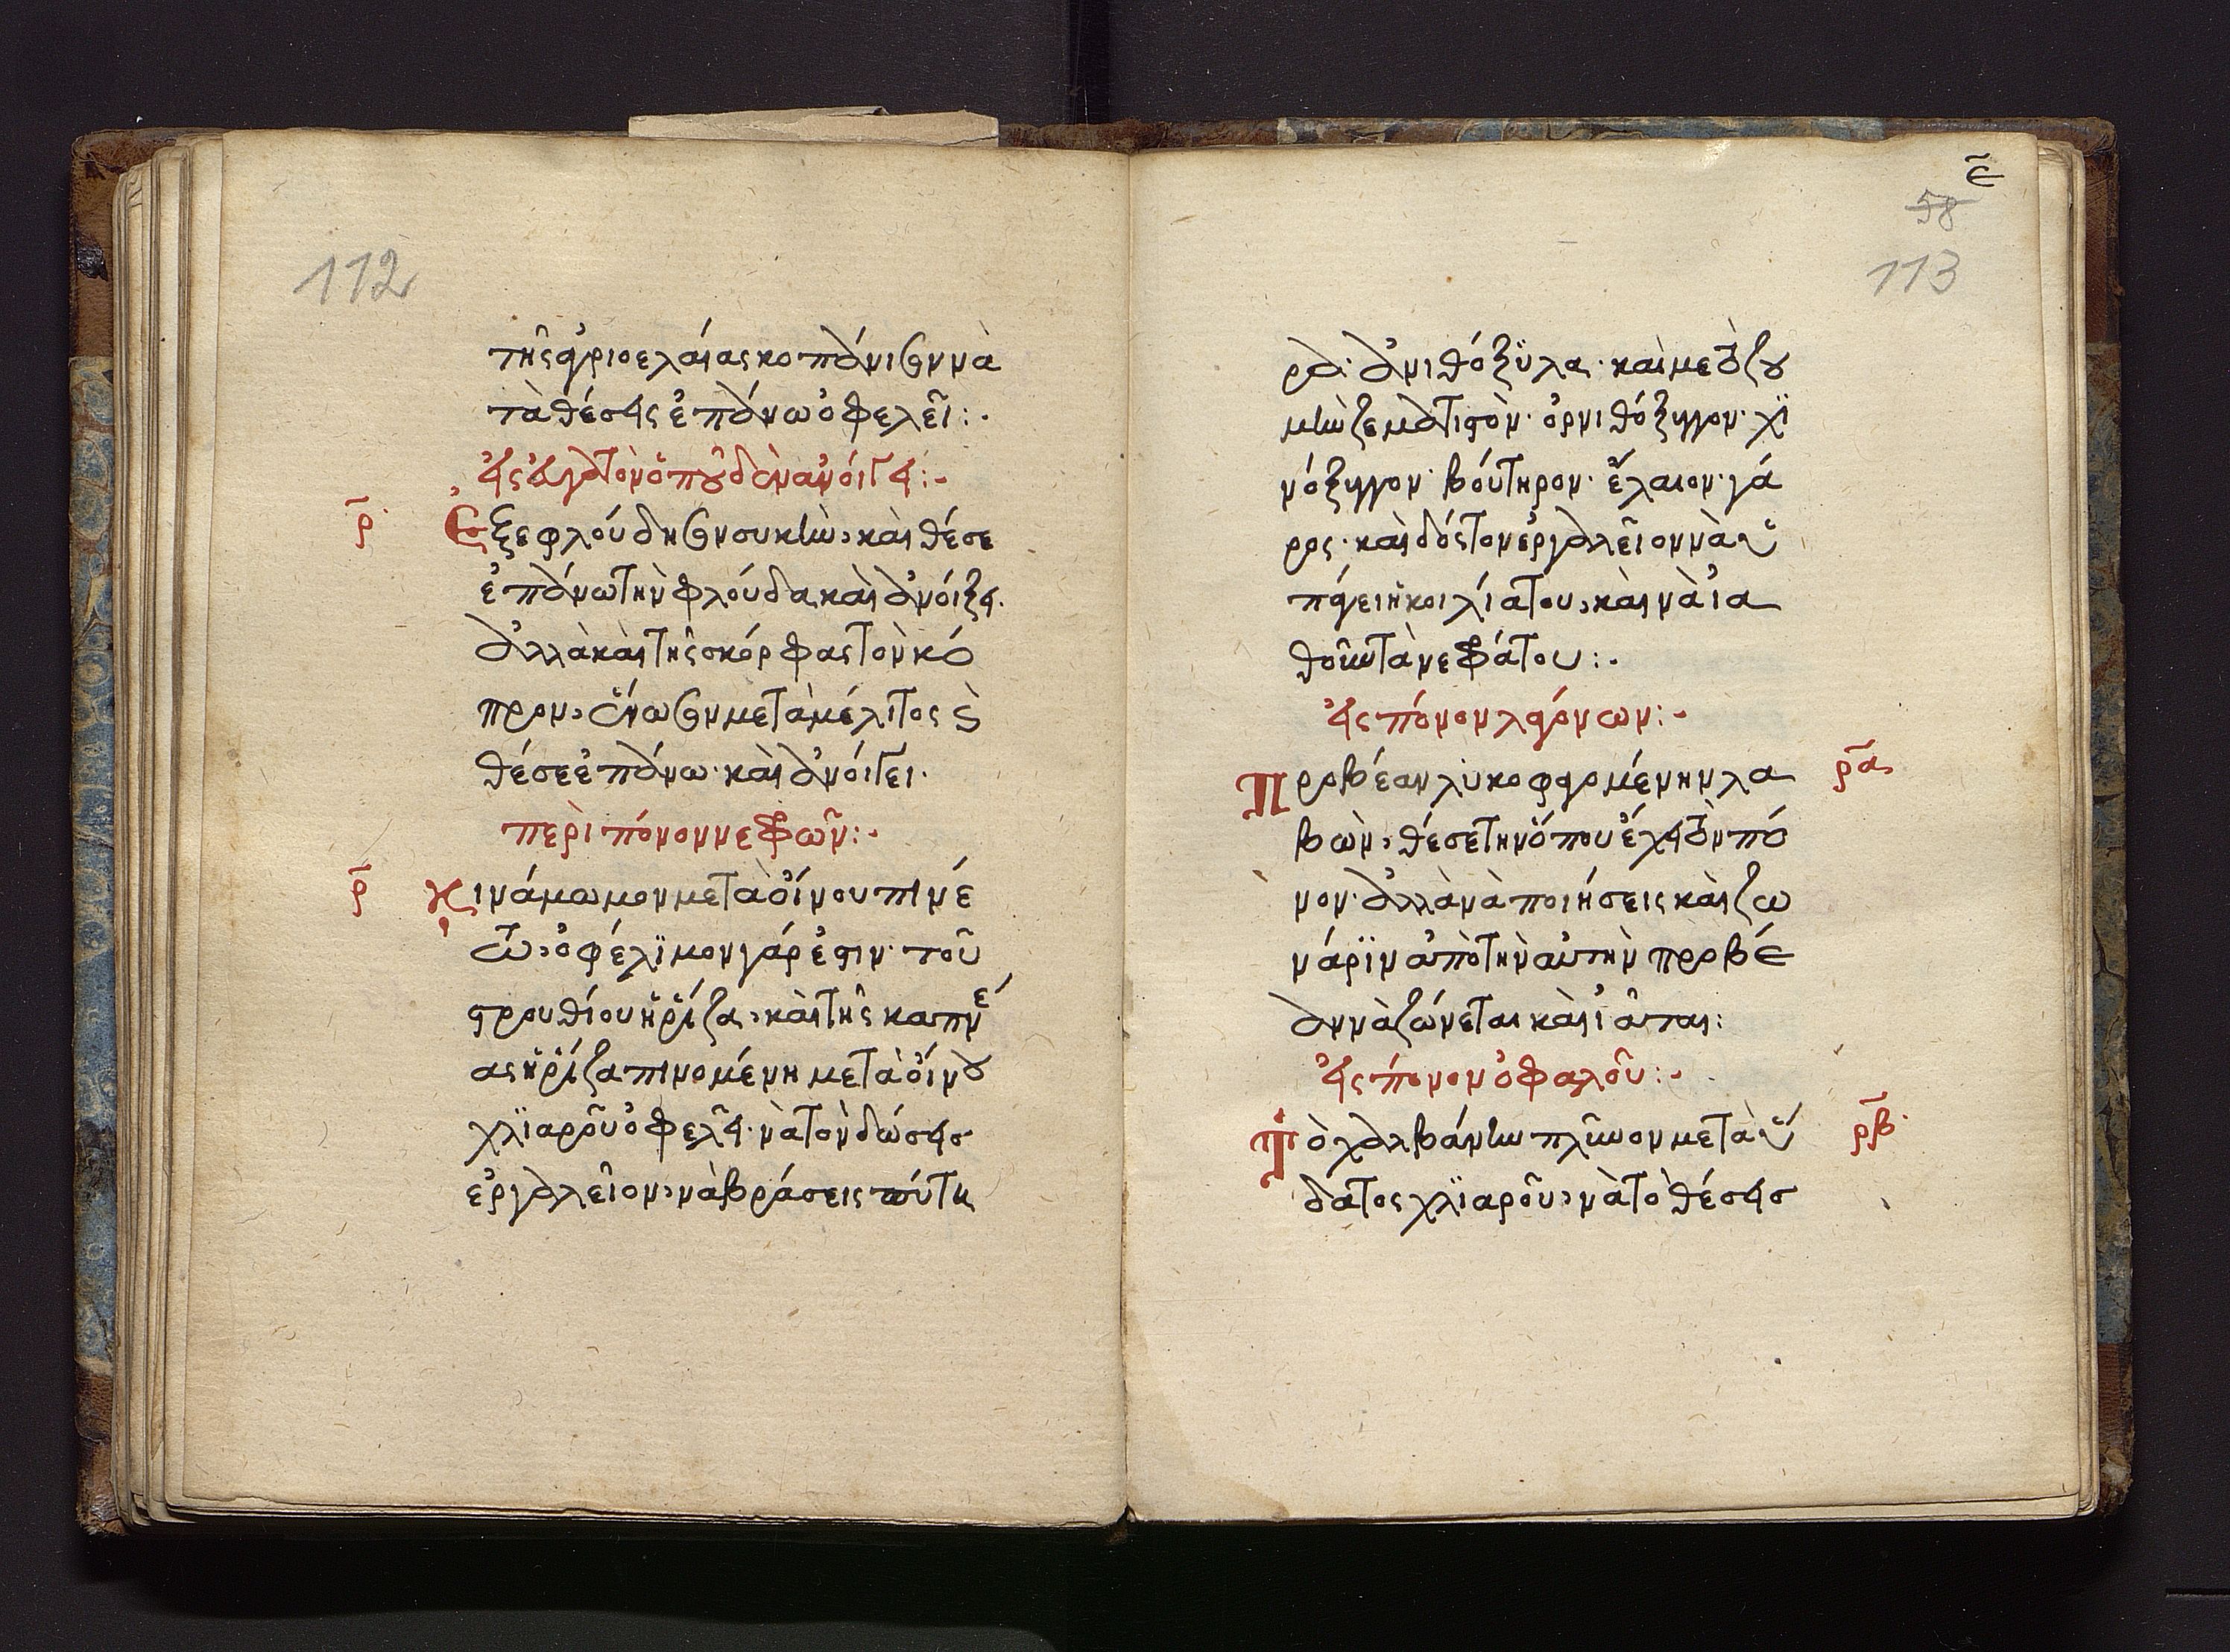 112
τῆς ἀγριοελαίας κοπάνισον νὰ
τὰ θέσεις ἐπάνω ὀφελεῖ:-
εἰς ἀλγατον ὁποῦ δὲν ἀνοίγει:-
ρ̄
Ἐξεφλούδησον συκὴν, καὶ θέσε
ἐπάνω τὴν φλούδα καὶ ἀνοίξει.
ἀλλὰ καὶ τῆς σκόρφας τὸν κό
προν, ἕνωσον μετὰ μέλιτος καὶ
θέσε ἐπάνω· καὶ ἀνοίγει·
περὶ πόνον νεφρῶν:-
ρ̄
Κινάμωμον μετὰ οἴνου πινέ
τω, ὀφέλϊμον γάρ ἐστιν· τοῦ
στρουθίου ἡ ῥίζα, καὶ τῆς καπνέ
ας ἡ ῥίζα πινομένη μετὰ οἴνου
χλϊαροῦ ὀφελεῖ· νὰ τὸν δώσεις
ἐργαλεῖον, νὰ βράσεις
ε̄
58
113
καὶ μὲ ὄζου
ὀρνιθόξυγγον· χϊ
νόξυγγον· βούτηρον· ἔλαιον· γά
ρος· καὶ δός τον ἐργαλεῖον νὰ ὑ
πάγει ἡ κοιλία του, καὶ νὰ ἰα
θοῦν τὰ νεφρά του:-
εἰς πόνον λαγόνων:-
ρ̄α
Προβέαν λυκοφαγομένην λα
βὼν, θέσε την ὅπου ἔχει τὸν πό
νον· ἀλλὰ νὰ ποιήσεις καὶ ζω
νάρϊν ἀπὸ τὴν αὐτὴν προβέ
αν νὰ ζώνεται καὶ ἰᾶται:
εἰς πόνον ὀφαλοῦ:-
ρ̄β
Τὸ χαλβάνην πλῦνον μετὰ ὕ
δατος χλϊαροῦ, νὰ τὸ θέσεις